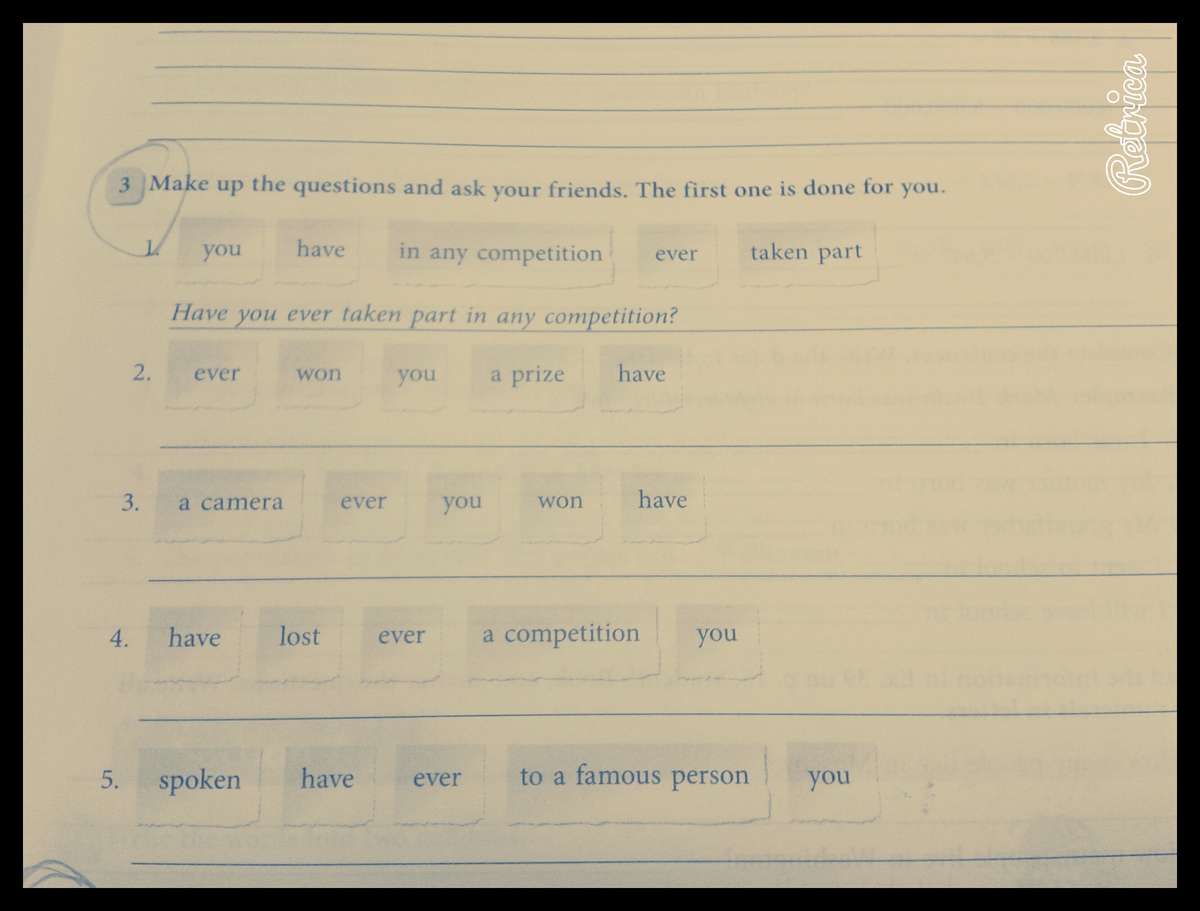 Retrica
3 Make up the questions and ask your friends. The first one is done for you.
1. you have in any competition ever taken part
Have you ever taken part in any competition?
2. ever won you a prize have
3. a camera ever you won have
4. have lost ever a competition you
5. spoken have ever to a famous person you